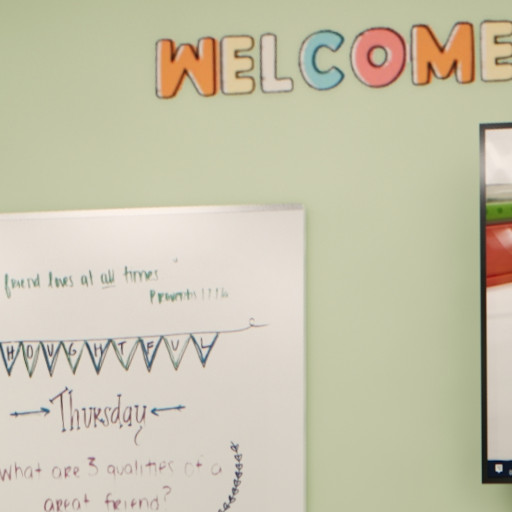 WELCOME
friend loves at all times"
Proverbs 17:17a
HOUGHTFUL
Thursday
What are 3 qualities of a
great friend?